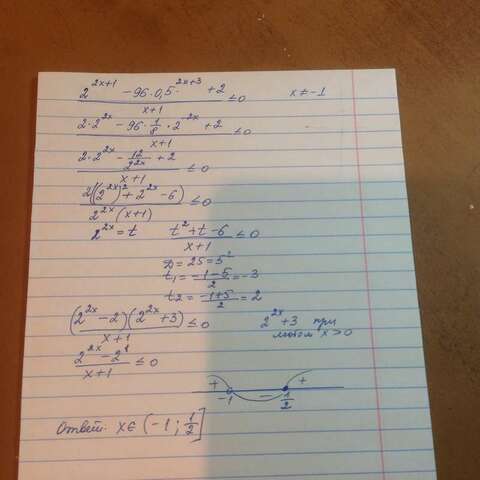 2^{2x+1} - 96·0,5^{2x+3} + 2 / x+1 ≤0 x≠-1
2·2^{2x} - 96·1/8·2^{2x} + 2 / x+1 ≤0
2·2^{2x} - 12/2^{2x} + 2 / x+1 ≤0
2((2^{2x})^2 + 2^{2x} - 6) / 2^{2x}(x+1) ≤0
2^{2x} = t t^2+t-6 / x+1 ≤0
D = 25 = 5^2
t1 = -1-5 / 2 = -3
t2 = -1+5 / 2 = 2
(2^{2x} - 2)(2^{2x} + 3) / x+1 ≤0 2^{2x} + 3 при
любом x > 0
2^{2x} - 2^1 / x+1 ≤ 0
+ - +
-1 1/2
Ответ: x∈(-1; 1/2]